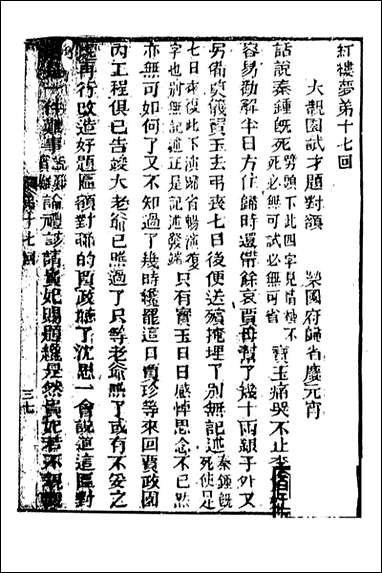 紅樓夢第十七回
大觀園試才題對額 榮國府歸省慶元宵
話說秦鍾旣死 劈頭下此四字見情緣不死必無可試必無可省 寶玉痛哭不止李
容易勸解半日方住歸時還帶餘哀賈母幫了幾十兩銀子外又
另備奠儀寶玉去弔喪七日後便送殯掩埋了別無記述 秦鍾旣死便足
七日來復此下演歸省暢演復字也別無記述正是記述發端 只有寶玉日日感悼思念不已然
亦無可如何了又不知過了幾時纔罷這日賈珍等來回賈政園
內工程俱已告竣大老爺已瞧過了只等老爺瞧了或有不妥之
處再行改造好題匾額對聯的賈政聽了沈思一會說道這匾對
一件難事論禮該請貴妃賜題纔是然貴妃若不親觀
第十七回
三七